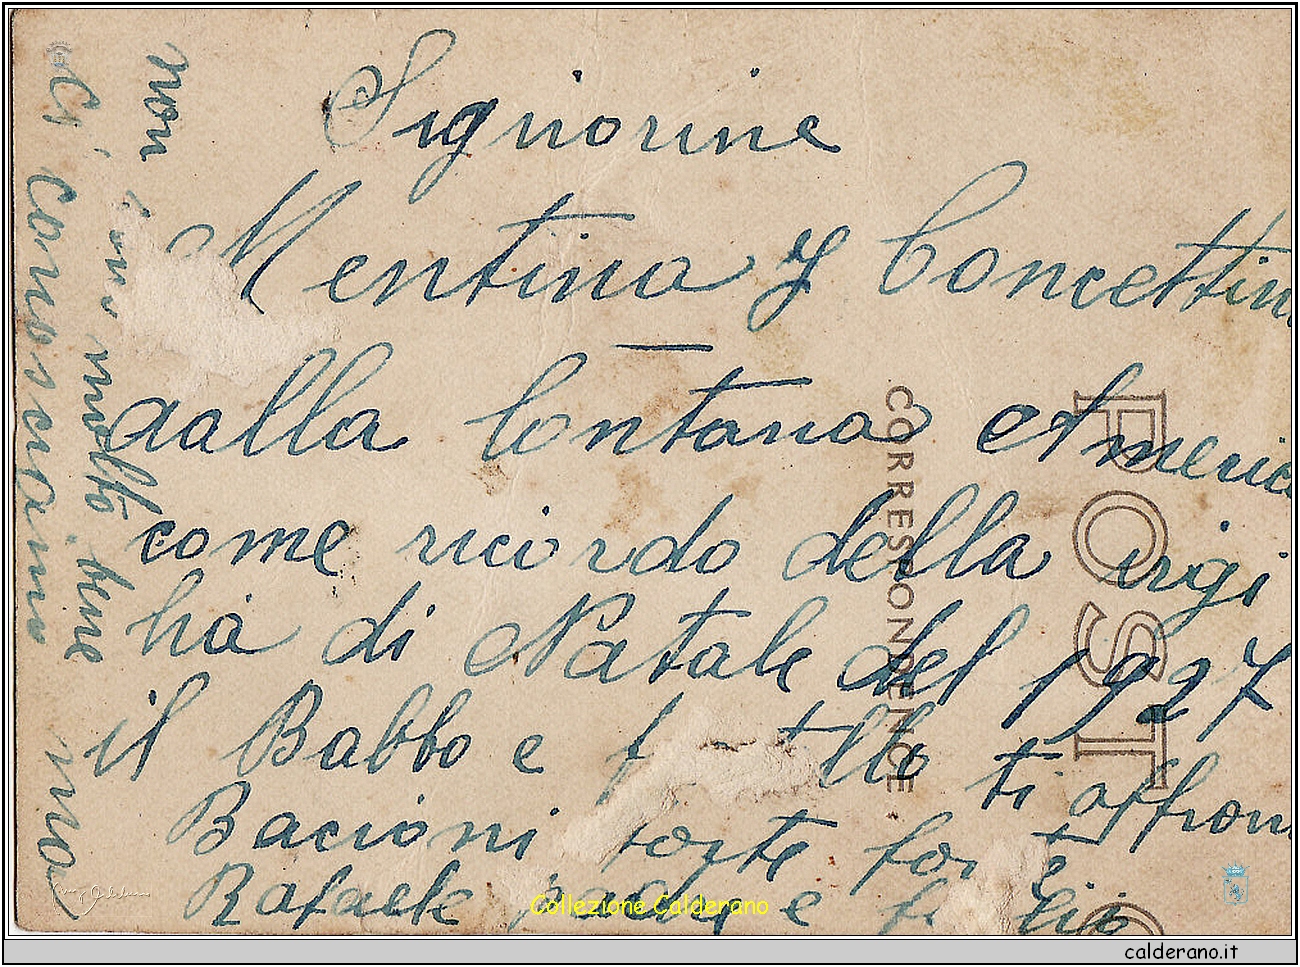 Signorine
Mentina y Concettin
dalla lontana America
come ricordo della vigi
lia di Natale del 1927
il Babbo e f tello ti offrono
Bacioni forte forte
Rafaele padre e figlio
ci conosciamo ma
non molto bene
POST
CORRESPONDENCE
Collezione Calderano
calderano.it